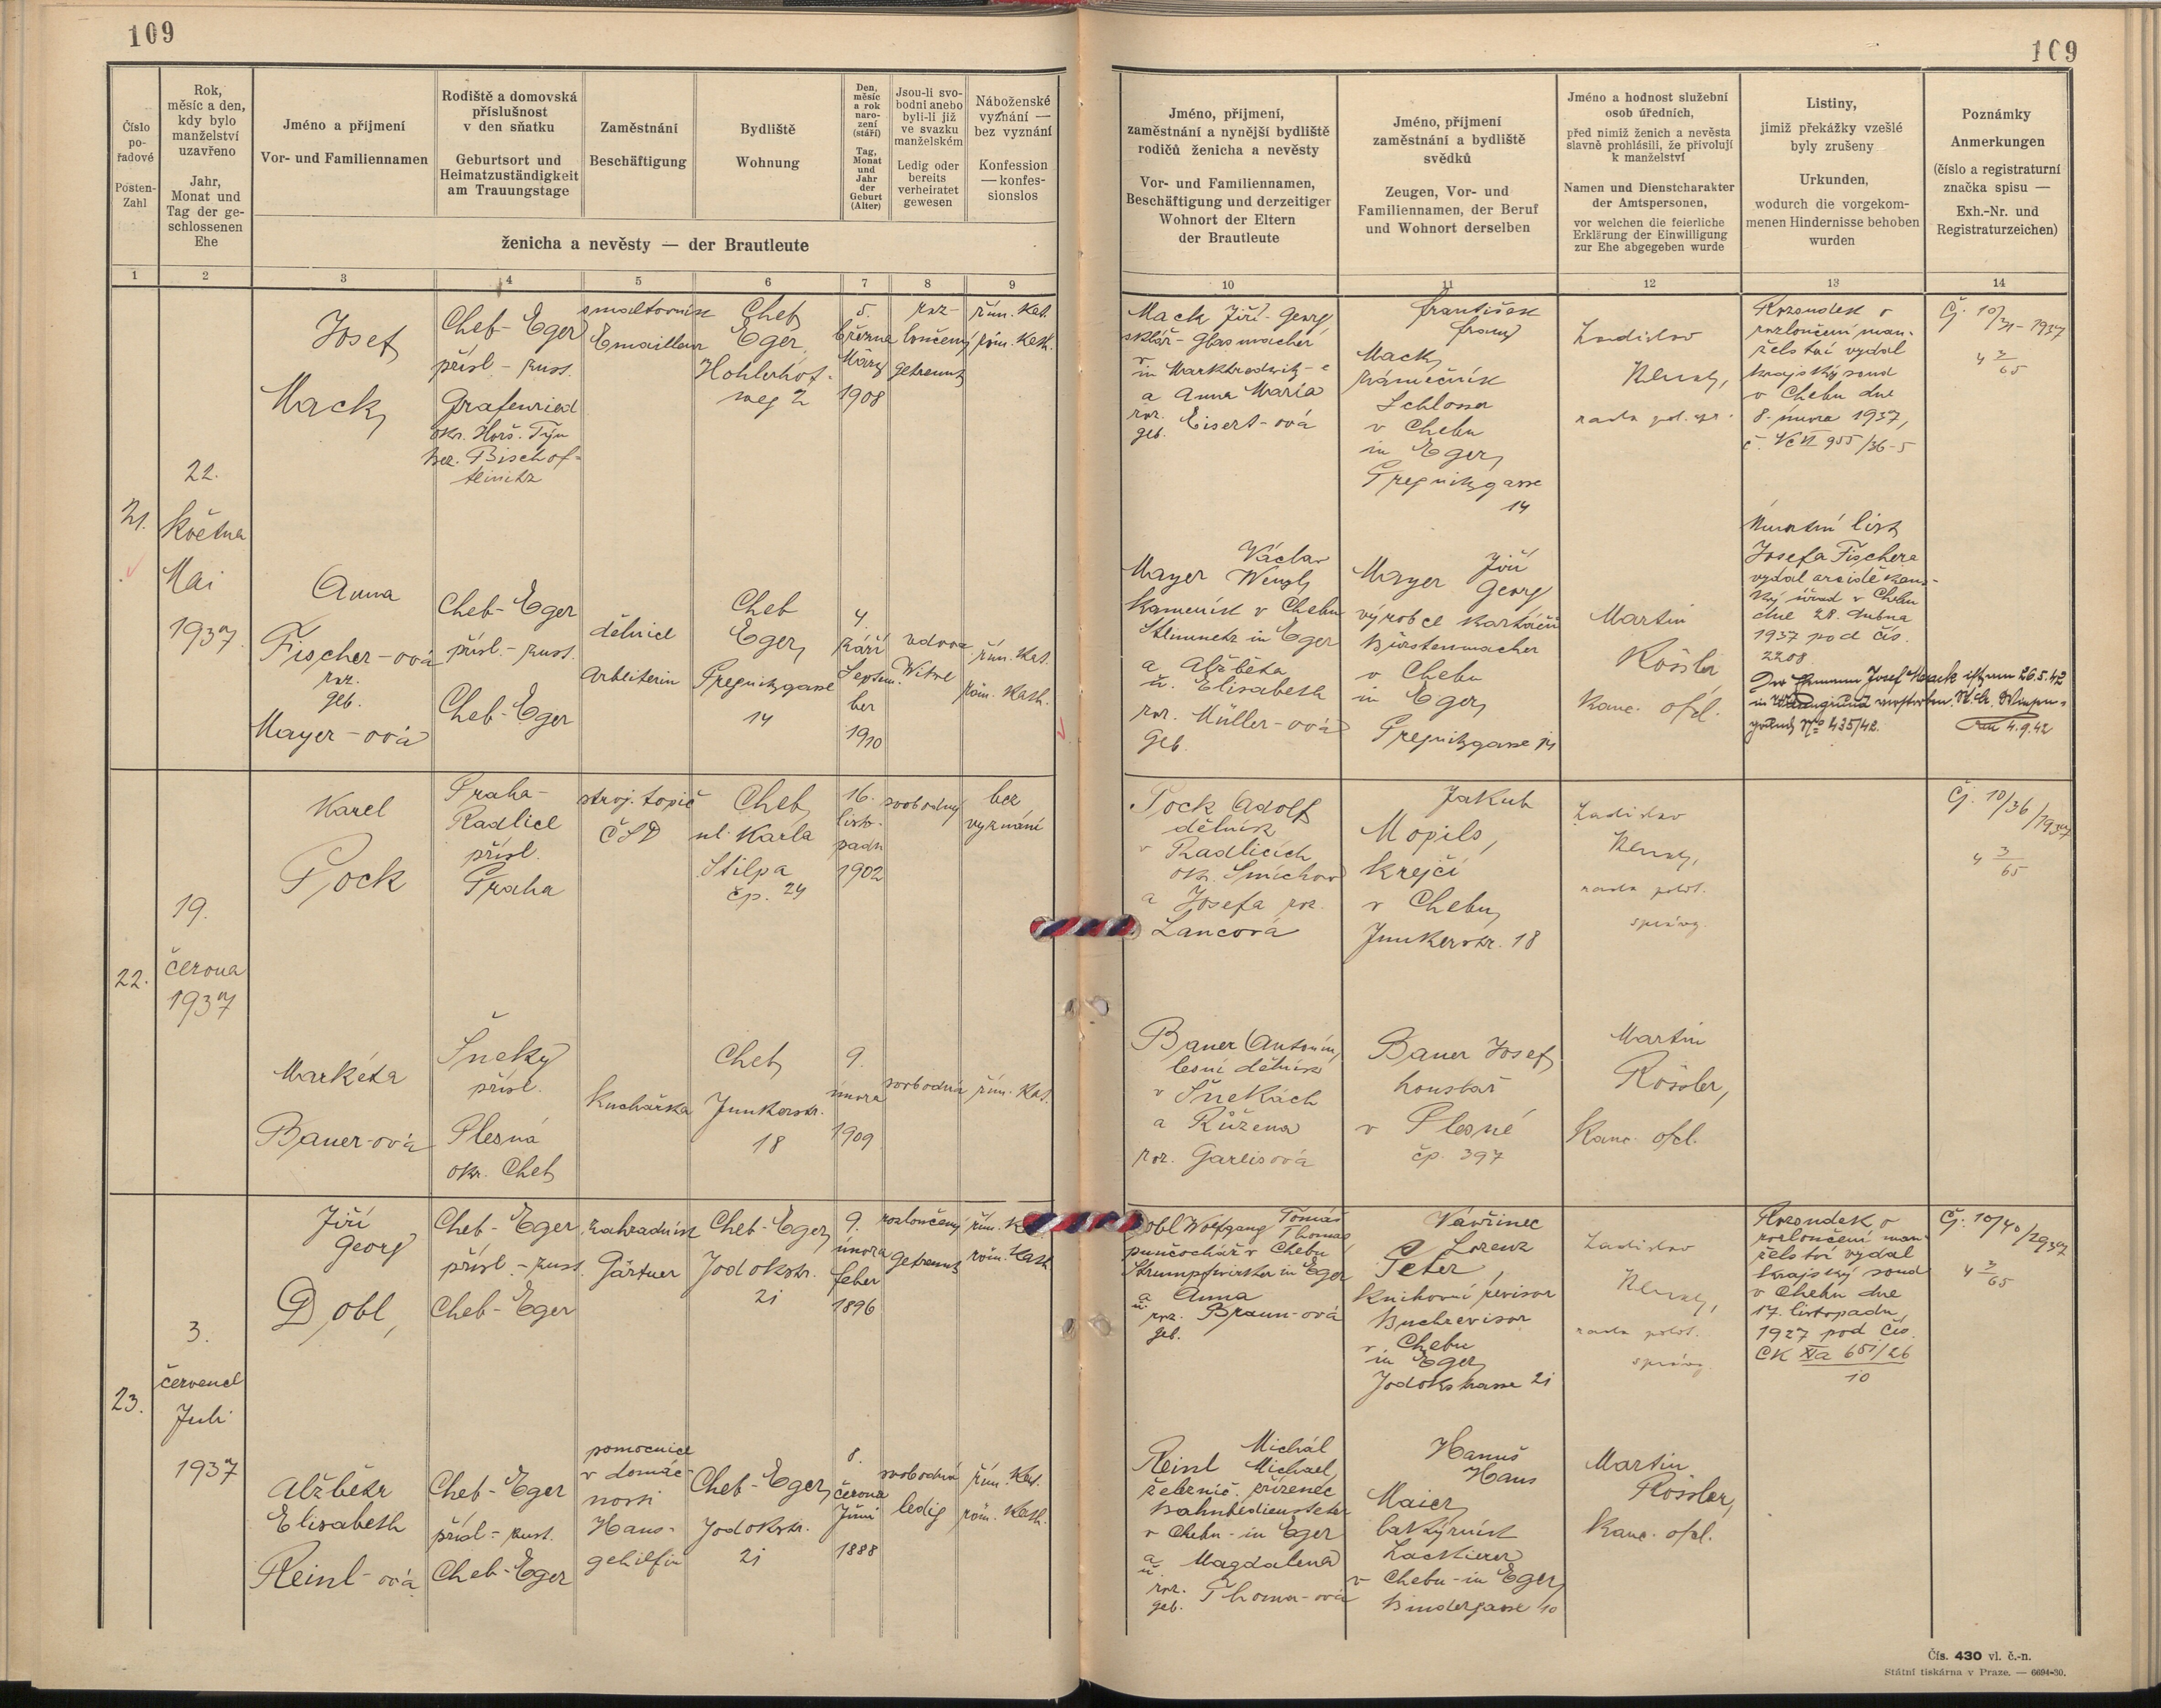 109
109
Číslo
po-
řadové
Posten-
Zahl
Rok,
měsíc a den,
kdy bylo
manželství
uzavřeno
Jahr,
Monat und
Tag der ge-
schlossenen
Ehe
Jméno a příjmení
Vor- und Familiennamen
Rodiště a domovská
příslušnost
v den sňatku
Geburtsort und
Heimatzuständigkeit
am Trauungstage
Zaměstnání
Beschäftigung
Bydliště
Wohnung
Den,
měsíc
a rok
naro-
zení
(stáří)
Tag,
Monat
und
Jahr
der
Geburt
(Alter)
Jsou-li svo-
bodni anebo
byli-li již
ve svazku
manželském
Ledig oder
bereits
verheiratet
gewesen
Náboženské
vyznání —
bez vyznání
Konfession
— konfes-
sionslos
ženicha a nevěsty — der Brautleute
Jméno, příjmení,
zaměstnání a nynější bydliště
rodičů ženicha a nevěsty
Vor- und Familiennamen,
Beschäftigung und derzeitiger
Wohnort der Eltern
der Brautleute
Jméno, příjmení
zaměstnání a bydliště
svědků
Zeugen, Vor- und
Familiennamen, der Beruf
und Wohnort derselben
Jméno a hodnost služební
osob úředních,
před nimiž ženich a nevěsta
slavně prohlásili, že přivolují
k manželství
Namen und Dienstcharakter
der Amtspersonen,
vor welchen die feierliche
Erklärung der Einwilligung
zur Ehe abgegeben wurde
Listiny,
jimiž překážky vzešlé
byly zrušeny
Urkunden,
wodurch die vorgekom-
menen Hindernisse behoben
wurden
Poznámky
Anmerkungen
(číslo a registraturní
značka spisu —
Exh.-Nr. und
Registraturzeichen)
1 2 3 4 5 6 7 8 9 10 11 12 13 14
21.
22.
Května
Mai
1937.
Josef
Mack
Cheb-Eger
přísl.-zust.
Grafenried
okr. Horš. Týn
bez. Bischof-
teinitz
smaltovník
Emailleur
Cheb
Eger,
Hohlerhof-
weg 2
5.
března
März
1908
roz-
loučený
getrennt
řím. kat.
röm. kath.
Mack Jiří-Georg
sklář-Glasmacher
v
in Marktredwitz-e
a Anna Maria
roz.
geb. Eisert-ová
František
Franz
Mack,
zámečník
Schlosser
v Chebu
in Eger,
Pregnitzgasse
14
Ladislav
rada pol. spr.
Rozsudek o
rozloučení man-
želství vydal
krajský soud
v Chebu dne
8. února 1937,
č. Vc VI 955/36-5
Čj. 10/31-1937
4 3/65
Anna
Fischer-ová
roz.
geb.
Mayer-ová
Cheb-Eger
přísl.-zust.
Cheb-Eger
dělnice
Arbeiterin
Cheb
Eger,
Pregnitzgasse
14
4.
září
Septem-
ber
1910
vdova
Witwe
řím. kat.
röm. kath.
Václav
Mayer Wenzl,
kameník v Chebu
Steinmetz in Eger
a Alžběta
u. Elisabeth
roz. Müller-ová
geb.
Jiří
Mayer Georg
výrobce kartáčů
Bürstenmacher
v Chebu
in Eger,
Pregnitzgasse 14
Martin
Rössler
kanc. ofcl.
Úmrtní list
Josefa Fischera
vydal arciděkan-
ský úřad v Chebu
dne 28. dubna
1937 pod čís.
2208.
Der Ehemann Josef Mack ist am 26.5.42
in verstorben. St.A.
No 435/42.
4.9.42
22.
19.
června
1937
Karel
Pock
Praha-
Radlice
přísl.
Praha
stroj. topič
ČSD
Cheb,
ul. Karla
Stilpa
čp. 24
16.
listo-
padu
1902
svobodný
bez
vyznání
Pock Adolf
dělník
v Radlicích
okr. Smíchov
a Josefa roz.
Lancová
Jakub
Mopils,
krejčí
v Chebu,
Junkerstr. 18
Ladislav
rada polit.
správy
Čj. 10/36/1937
4 3/65
Markéta
Bauer-ová
Šneky
přísl.
Plesná
okr. Cheb
kuchařka
Cheb,
Junkerstr.
18
9.
února
1909
svobodná
řím. kat.
Bauer Antonín,
lesní dělník
v Šnekách
a Růžena
roz. Garlisová
Bauer Josef,
houslař
v Plesné
čp. 397
Martin
Rössler,
kanc. ofcl.
23.
3.
července
Juli
1937
Jiří
Georg
Dobl,
Cheb-Eger
přísl.-zust.
Cheb-Eger
zahradník
Gärtner
Cheb-Eger,
Jodokstr.
21
9.
února
Feber
1896
rozloučený
getrennt
řím. k
röm. kath
Dobl Wolfgang Tomáš
Thomas,
punčochář v Chebu
Strumpfwirker in Eger
a Anna
u.
roz. Braun-ová
geb.
Vavřinec
Lorenz
Peter,
knihovní revisor
Buchrevisor
v Chebu
in Eger,
Jodokstrasse 21
Ladislav
rada polit.
správy
Rozsudek o
rozloučení man-
želství vydal
krajský soud
v Chebu dne
17. listopadu
1927 pod čís.
CK XIa 651/26
10
Čj. 10/40/1937
4 3/65
Alžběta
Elisabeth
Reinl-ová
Cheb-Eger
přísl.-zust.
Cheb-Eger
pomocnice
v domác-
nosti
Haus-
gehilfin
Cheb-Eger,
Jodokstr.
21
8.
června
Juni
1888
svobodná
ledig
řím. kat.
röm. kath.
Michál
Reinl Michael,
železnič. zřízenec
Bahnbediensteter
v Chebu-in Eger
a Magdalena
u.
roz. Thoma-ová
geb.
Hanuš
Hans
Maier,
lakýrník
Lackierer
v Chebu-in Eger,
Bindergasse 10
Martin
Rössler,
kanc. ofcl.
Čís. 430 vl. č.-n.
Státní tiskárna v Praze. — 6694-30.